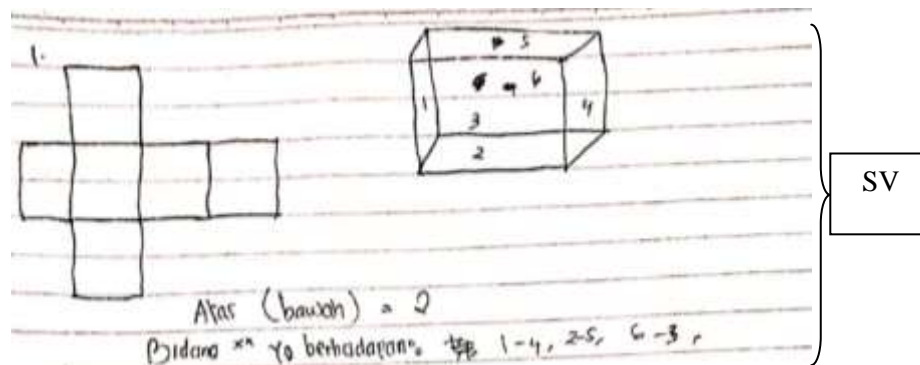 1.
5
6
1
3
4
2
SV
Atas (bawah) = 2
Bidang xx yg berhadapan = 1-4, 2-5, 6-3,